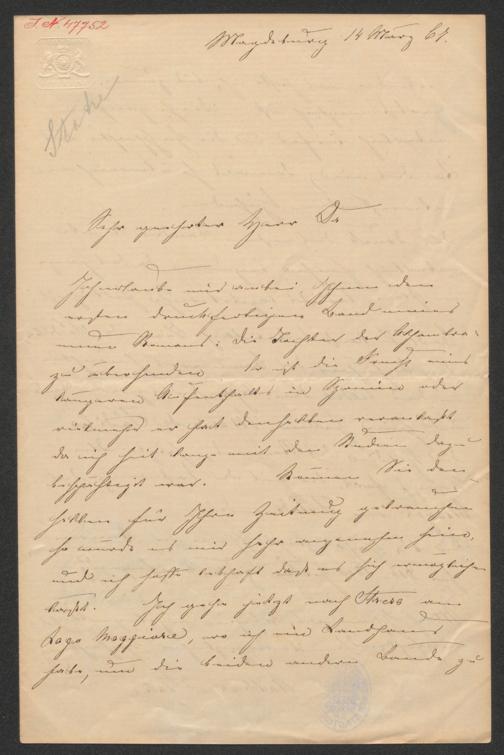 I. N. 47752
Magdeburg 14 März 67.
Sehr geehrter Herr Dr
Ich erlaube mir anbei Ihnen den
ersten druckfertigen Band meines
neuen Romans: die Tochter der
zu übersenden Er ist die Frucht eines
längeren Aufenthaltes in Spanien oder
vielmehr er hat denselben veranlaßt
da ich seit lange mit den Studien dazu
beschäftigt war. Können Sie den
selben für Ihre Zeitung gebrauchen
so würde es mir sehr angenehm sein,
und ich hoffe lebhaft daß es sich ermöglichen
läßt. Ich gehe jetzt nach Stresa am
Lago Maggiore, wo ich ein Landhaus
habe, um die beiden andern Bände zu